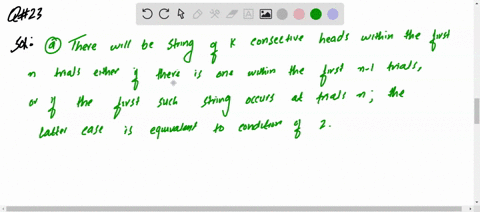 Q#23
Sol: (a) There will be string of K consective heads within the first
n trials either if there is one within the first n-1 trials,
or if the first such string occurs at trials n; the
latter case is equivalent to condition of 2.